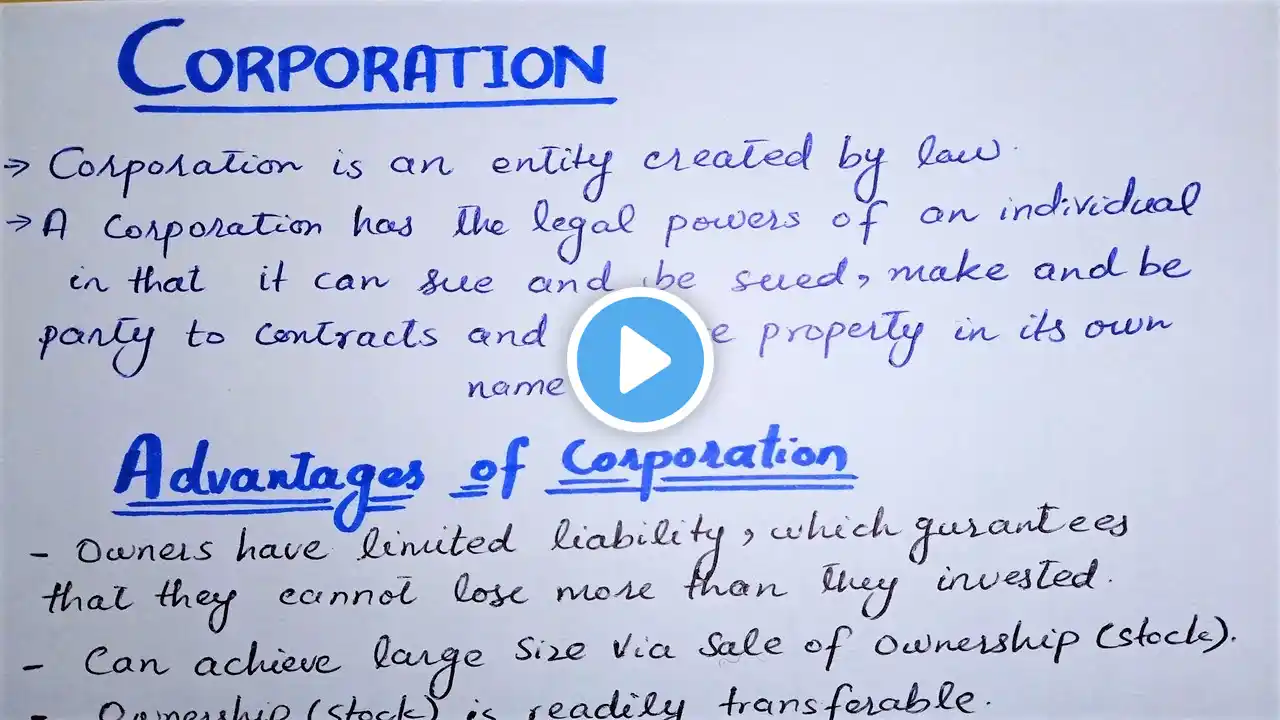 CORPORATION
→ Corporation is an entity created by law.
→ A corporation has the legal powers of an individual
in that it can sue and be sued, make and be
party to contracts and property in its own
name
Advantages of Corporation
- Owners have limited liability, which gurantees
that they cannot lose more than they invested.
- Can achieve large size via sale of ownership (stock).
- Ownership (stock) is readily transferable.